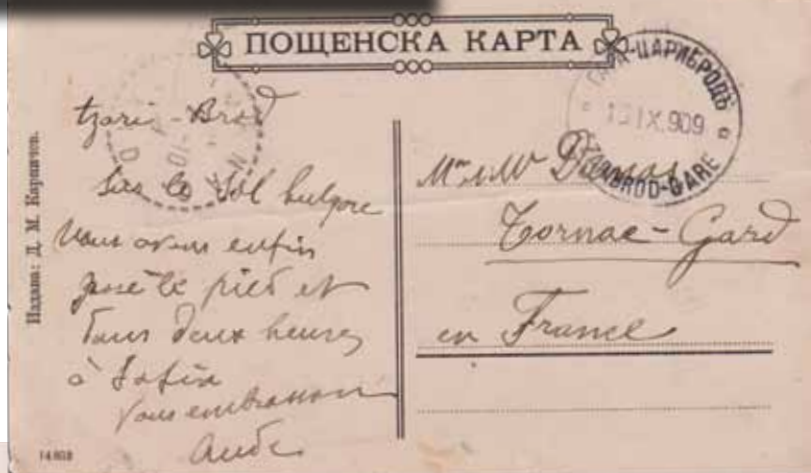 ПОЩЕНСКА КАРТА
ГАРА-ЦАРИБРОДЪ
IX.909
TZARIBROD-GARE
Издава: Д. М. Карпичев.
tzari-Brod
Sur le Sol bulgare
Nous avons enfin
posé le pied et
dans deux heures
à Sofia
Vous embrassons
Aude
Damas
Tornac-Gard
en France
14803